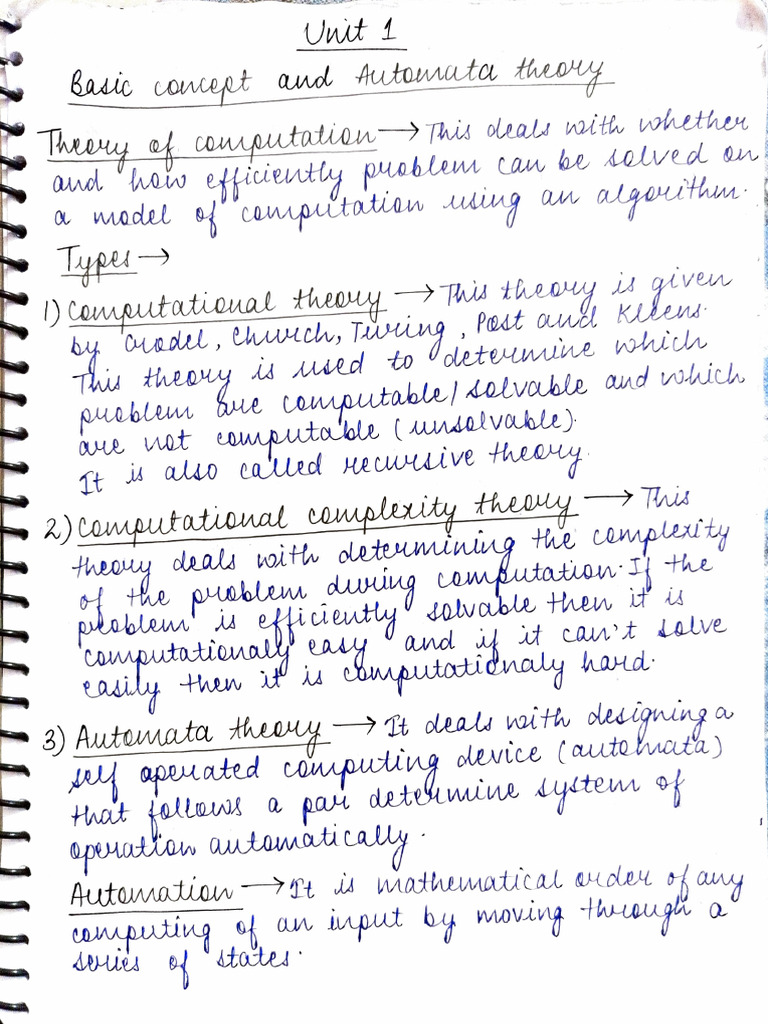 Unit 1
Basic concept and Automata theory
Theory of computation → This deals with whether
and how efficiently problem can be solved on
a model of computation using an algorithm.
Types →
1) Computational theory → This theory is given
by Grodel, Church, Turing, Post and Kleens.
This theory is used to determine which
problem are computable/solvable and which
are not computable (unsolvable).
It is also called recursive theory.
2) Computational complexity theory → This
theory deals with determining the complexity
of the problem during computation. If the
problem is efficiently solvable then it is
computationaly easy and if it can't solve
easily then it is computationaly hard.
3) Automata theory → It deals with designing a
self operated computing device (automata)
that follows a par determine system of
operation automatically.
Automation → It is mathematical order of any
computing of an input by moving through a
series of states.